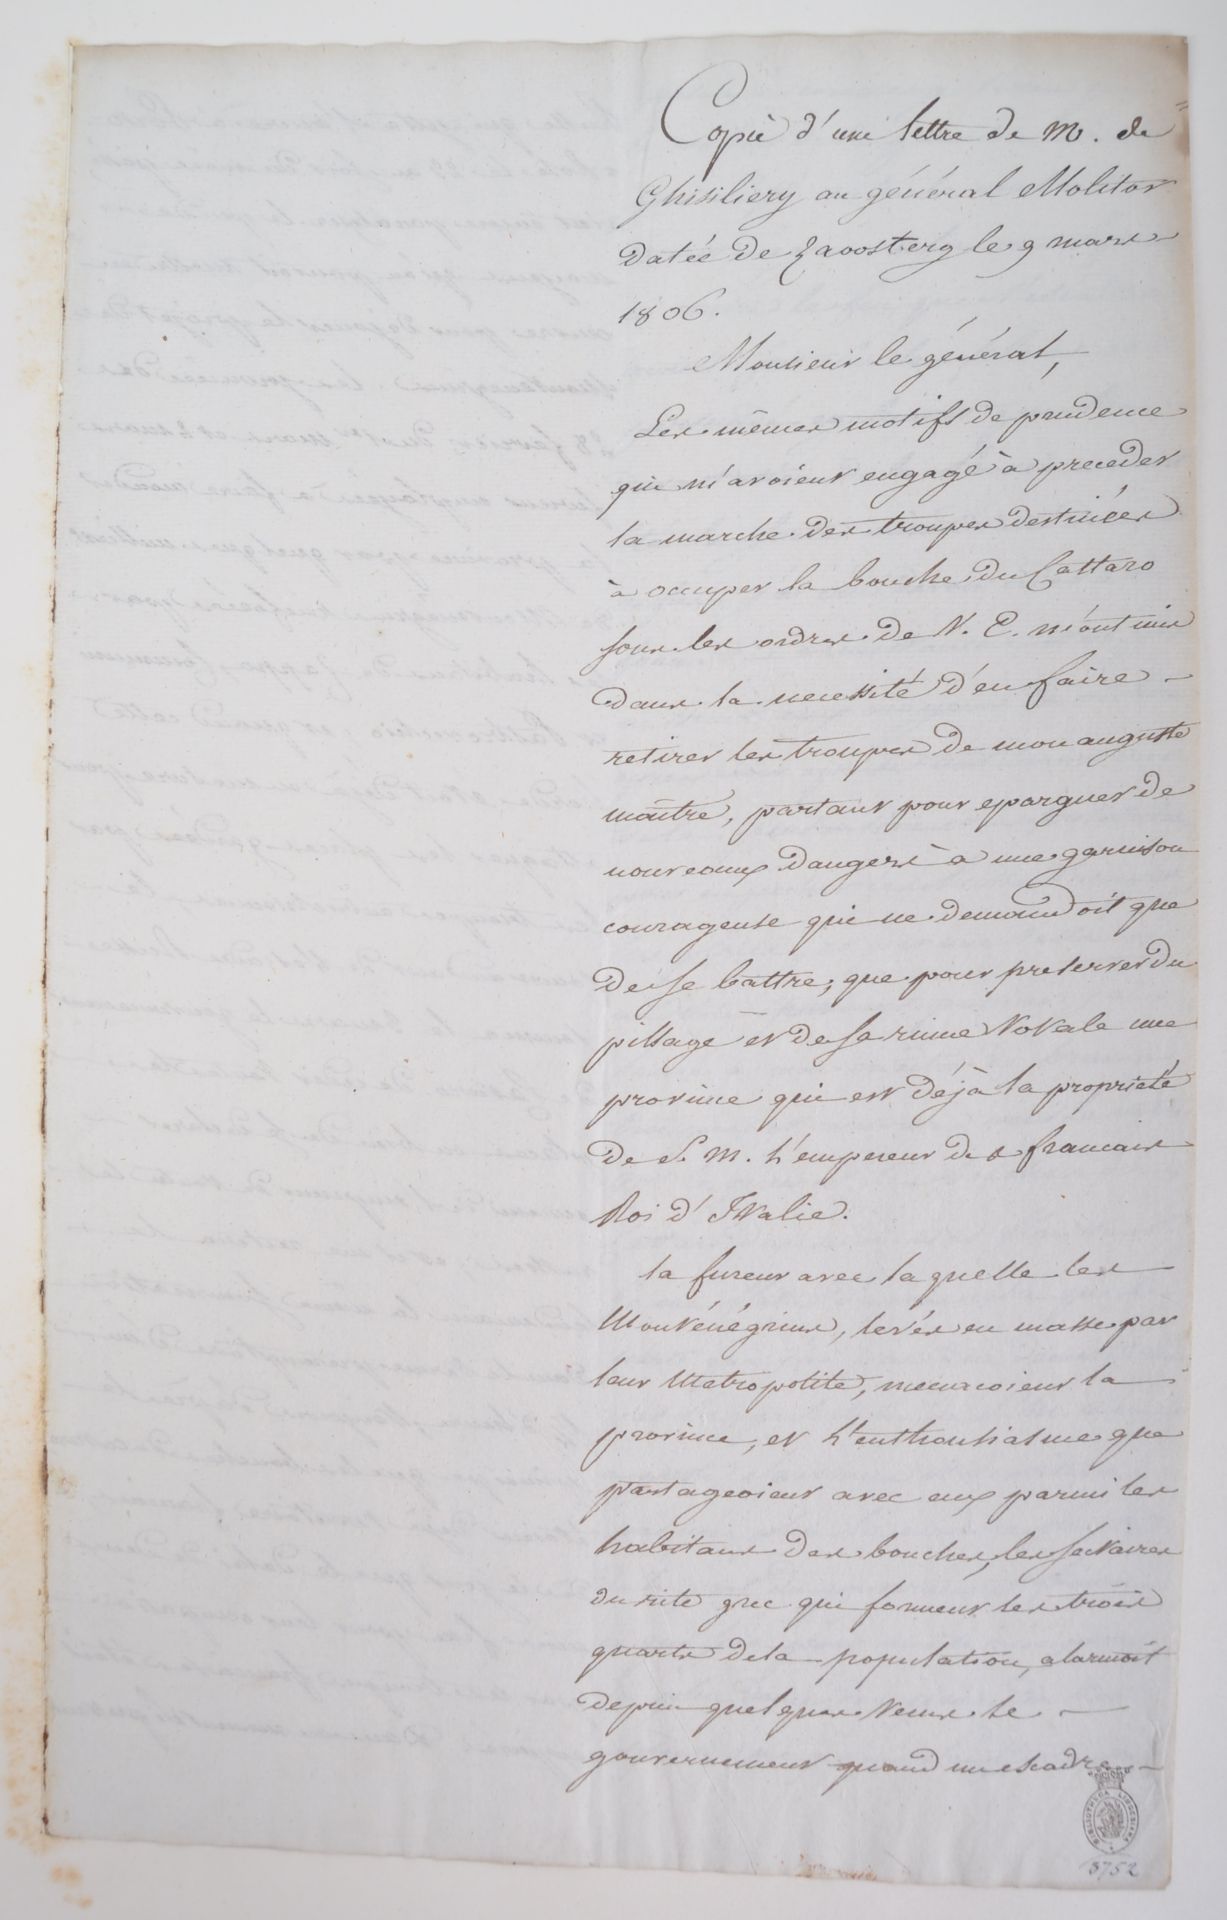 Copie d'une lettre de M. de
Ghisiliery au général Molitor
datée de Zavosterg le 9 mars
1806.
Monsieur le général,
Les mêmes motifs de prudence
qui m'avoient engagé à preceder
la marche des troupes destinées
à occuper la bouche du Cattaro
sous les ordres de V. E. m'ont mis
dans la necessité d'en faire
retirer les troupes de mon auguste
maître, partant pour epargner de
nouveaux dangers à une garnison
courageuse qui ne demandoit que
de se battre, que pour preserver du
pillage et de sa ruine totale une
province qui est déjà la propriété
de S. M. l'empereur des francais
Roi d'Italie.
la fureur avec laquelle les
Monténégrins, levés en masse par
leur Metropolite, menacoient la
province, et l'enthousiasme que
partageoient avec eux parmi les
habitans des bouches, les sectaires
du rite grec qui forment les trois
quarts de la population, alarmoit
depuis quelques tems le
gouvernement quand une escadre
BIBLIOTHECA LINDESIANA
3752